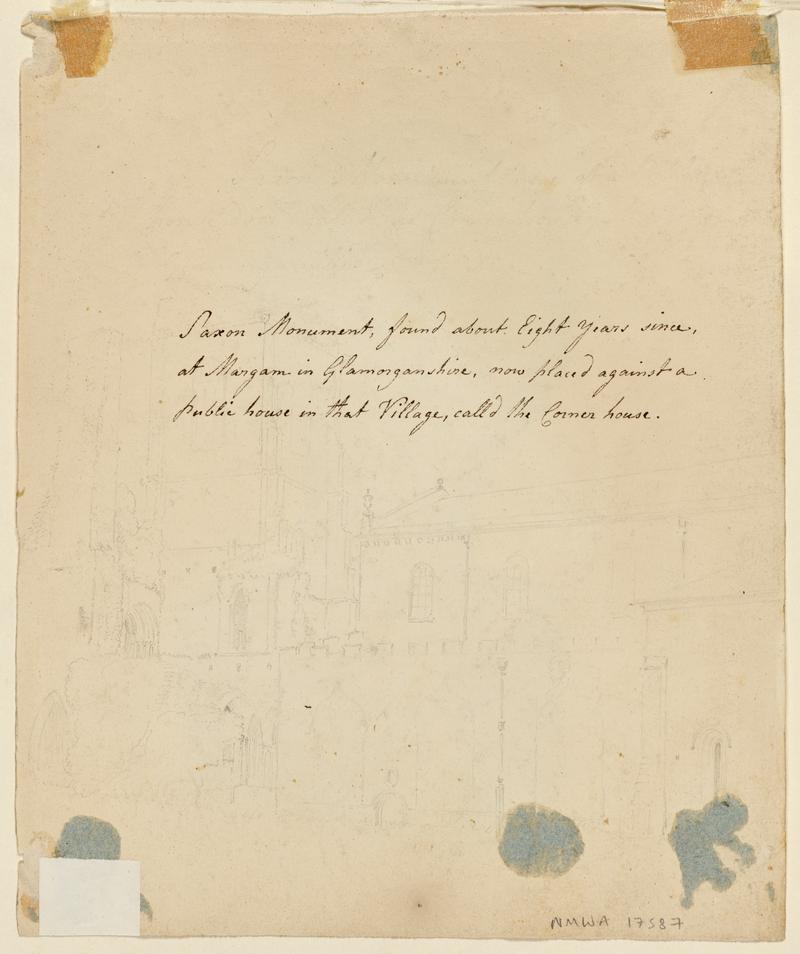 Saxon Monument, found about Eight Years since,
at Margam in Glamorganshire, now placed against a
public house in that Village, call'd the Corner house.
NMWA 17587